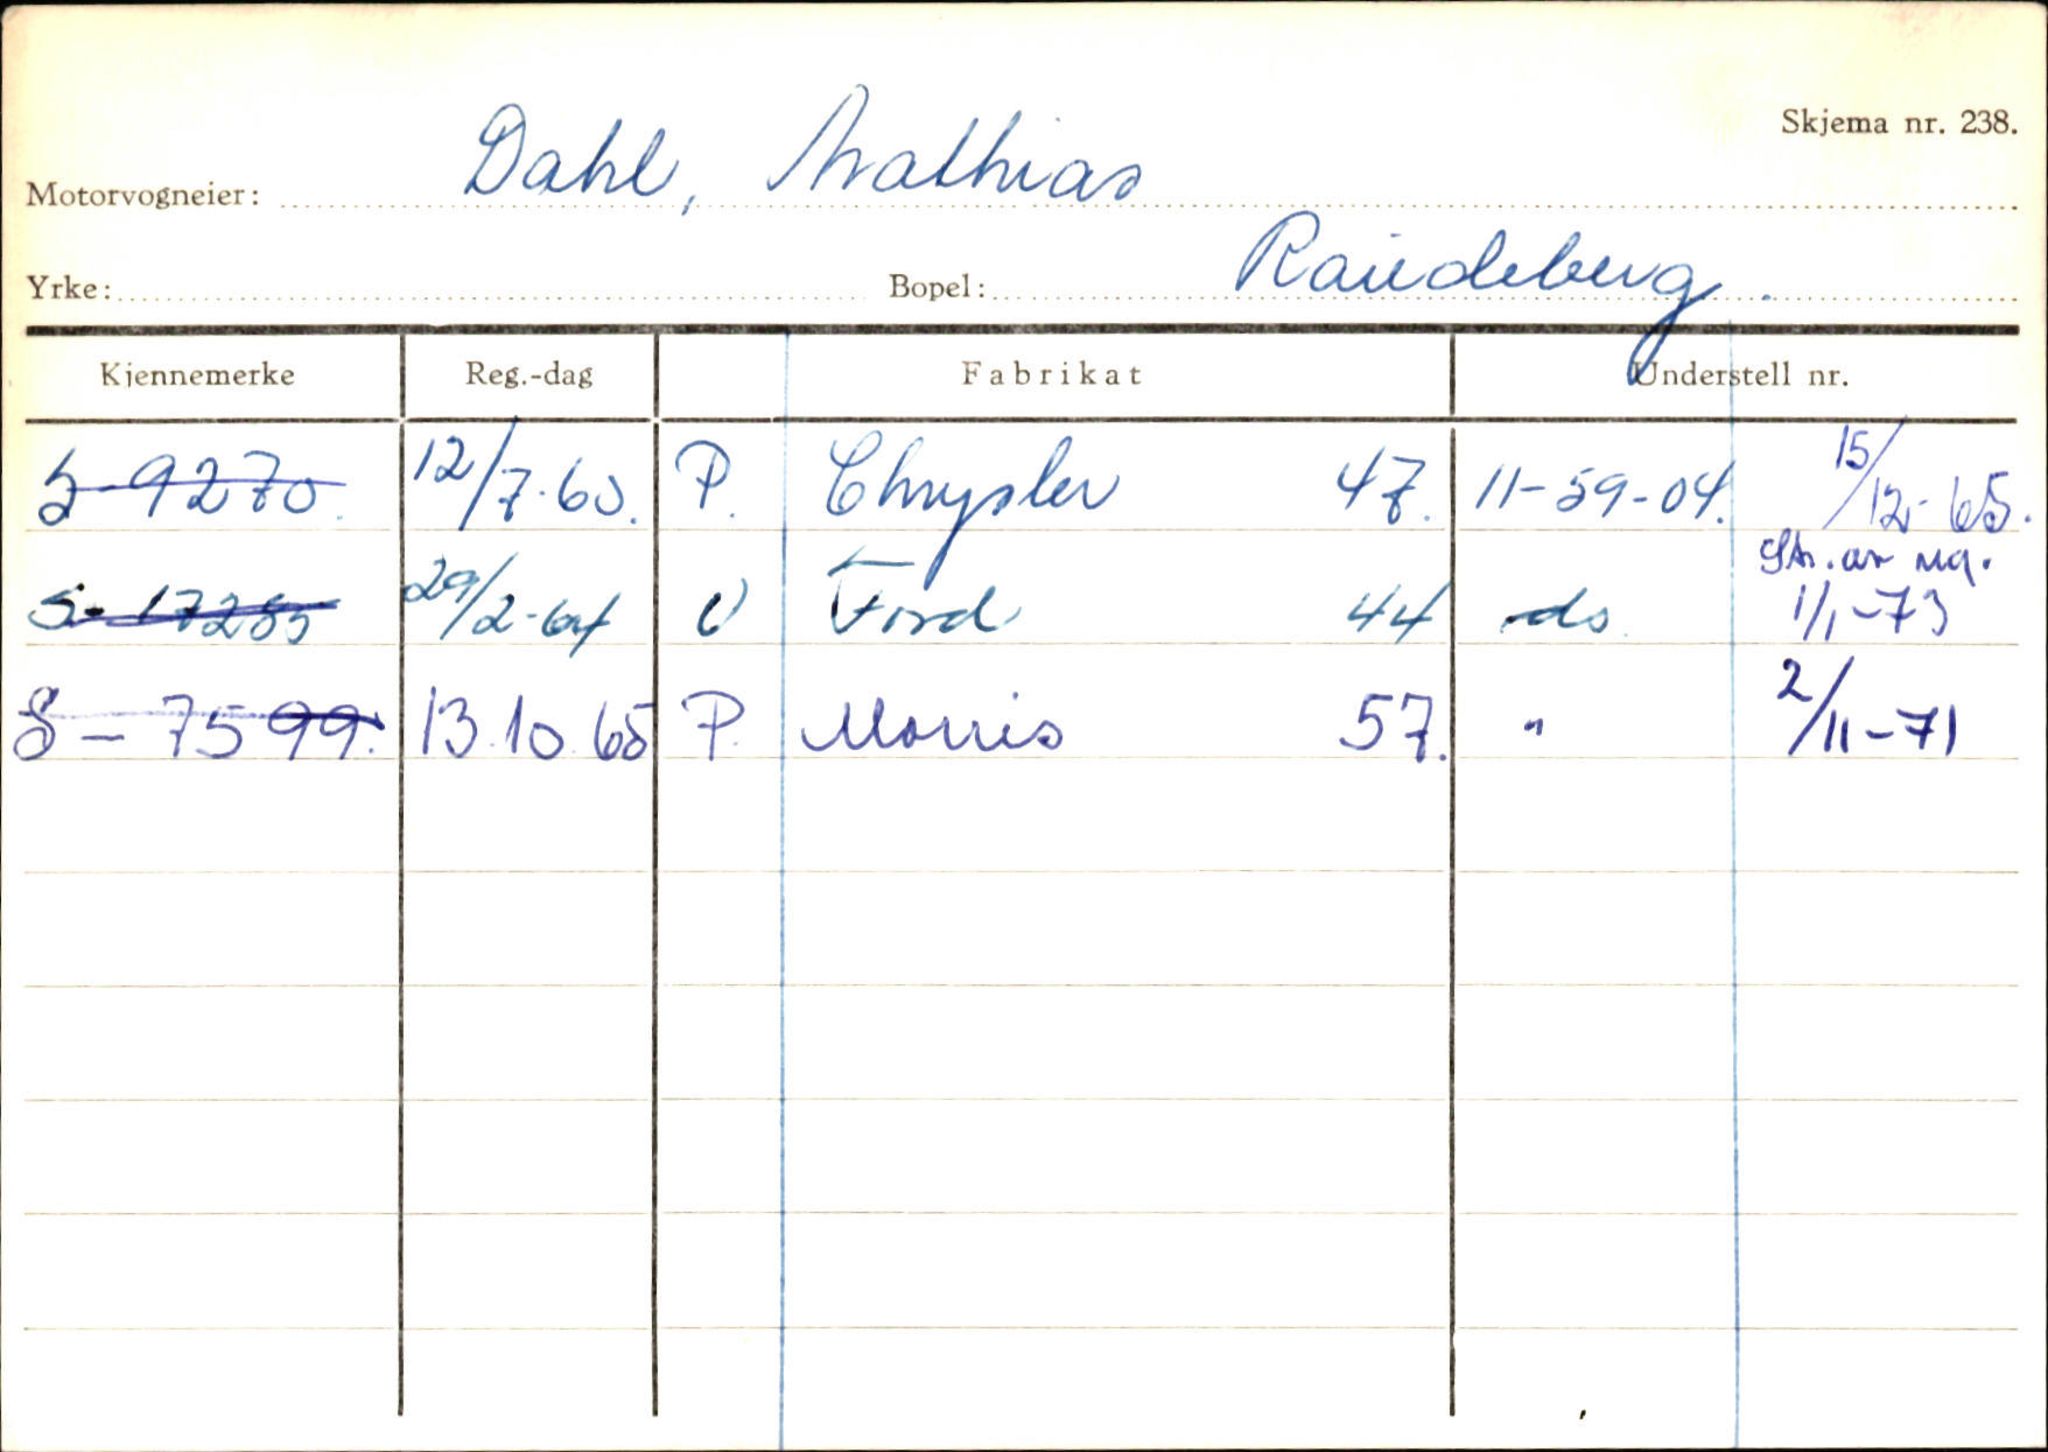 Skjema nr. 238.
Motorvogneier: Dahl, Mathias
Yrke: Bopel: Raudeberg.
Kjennemerke Reg.-dag Fabrikat Understell nr.
S-9270. 12/7-60. P. Chrysler 47. 11-59-04. 15/12-65.
Str. av reg.
S-17285 29/2-64 V Ford 44 do 1/1-73
S-7599. 13.10.65 P. Morris 57. " 2/11-71